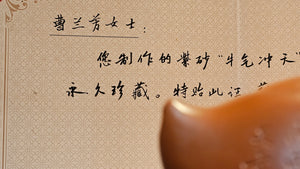 曹兰芳女士：
您制作的紫砂“牛气冲天”
永久珍藏。特贴此证